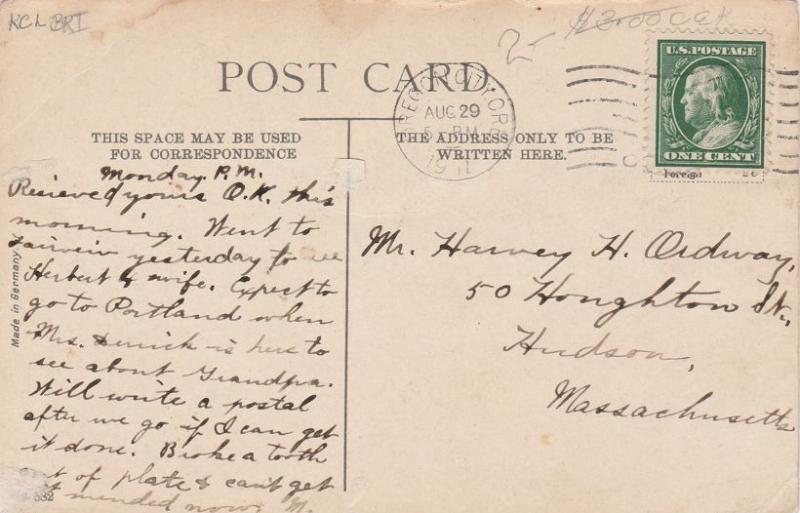 KCL BRI
2- $3.00
U.S. POSTAGE
ONE CENT
POST CARD
OREGON CITY OR
AUG 29
PM
1911
THIS SPACE MAY BE USED
FOR CORRESPONDENCE
THE ADDRESS ONLY TO BE
WRITTEN HERE.
Monday. P.M.
Recieved yours O.K. this
morning. Went to
Fairveiw yesterday to see
Herbert & wife. Expect to
go to Portland when
Mrs. is here to
see about Grandpa.
Will write a postal
after we go if I can get
it done. Broke a tooth
out of plate & can't get
it mended now. M.
Made in Germany
582
Mr. Harvey H. Ordway,
50 Houghton St.,
Hudson,
Massachusetts
Foreign